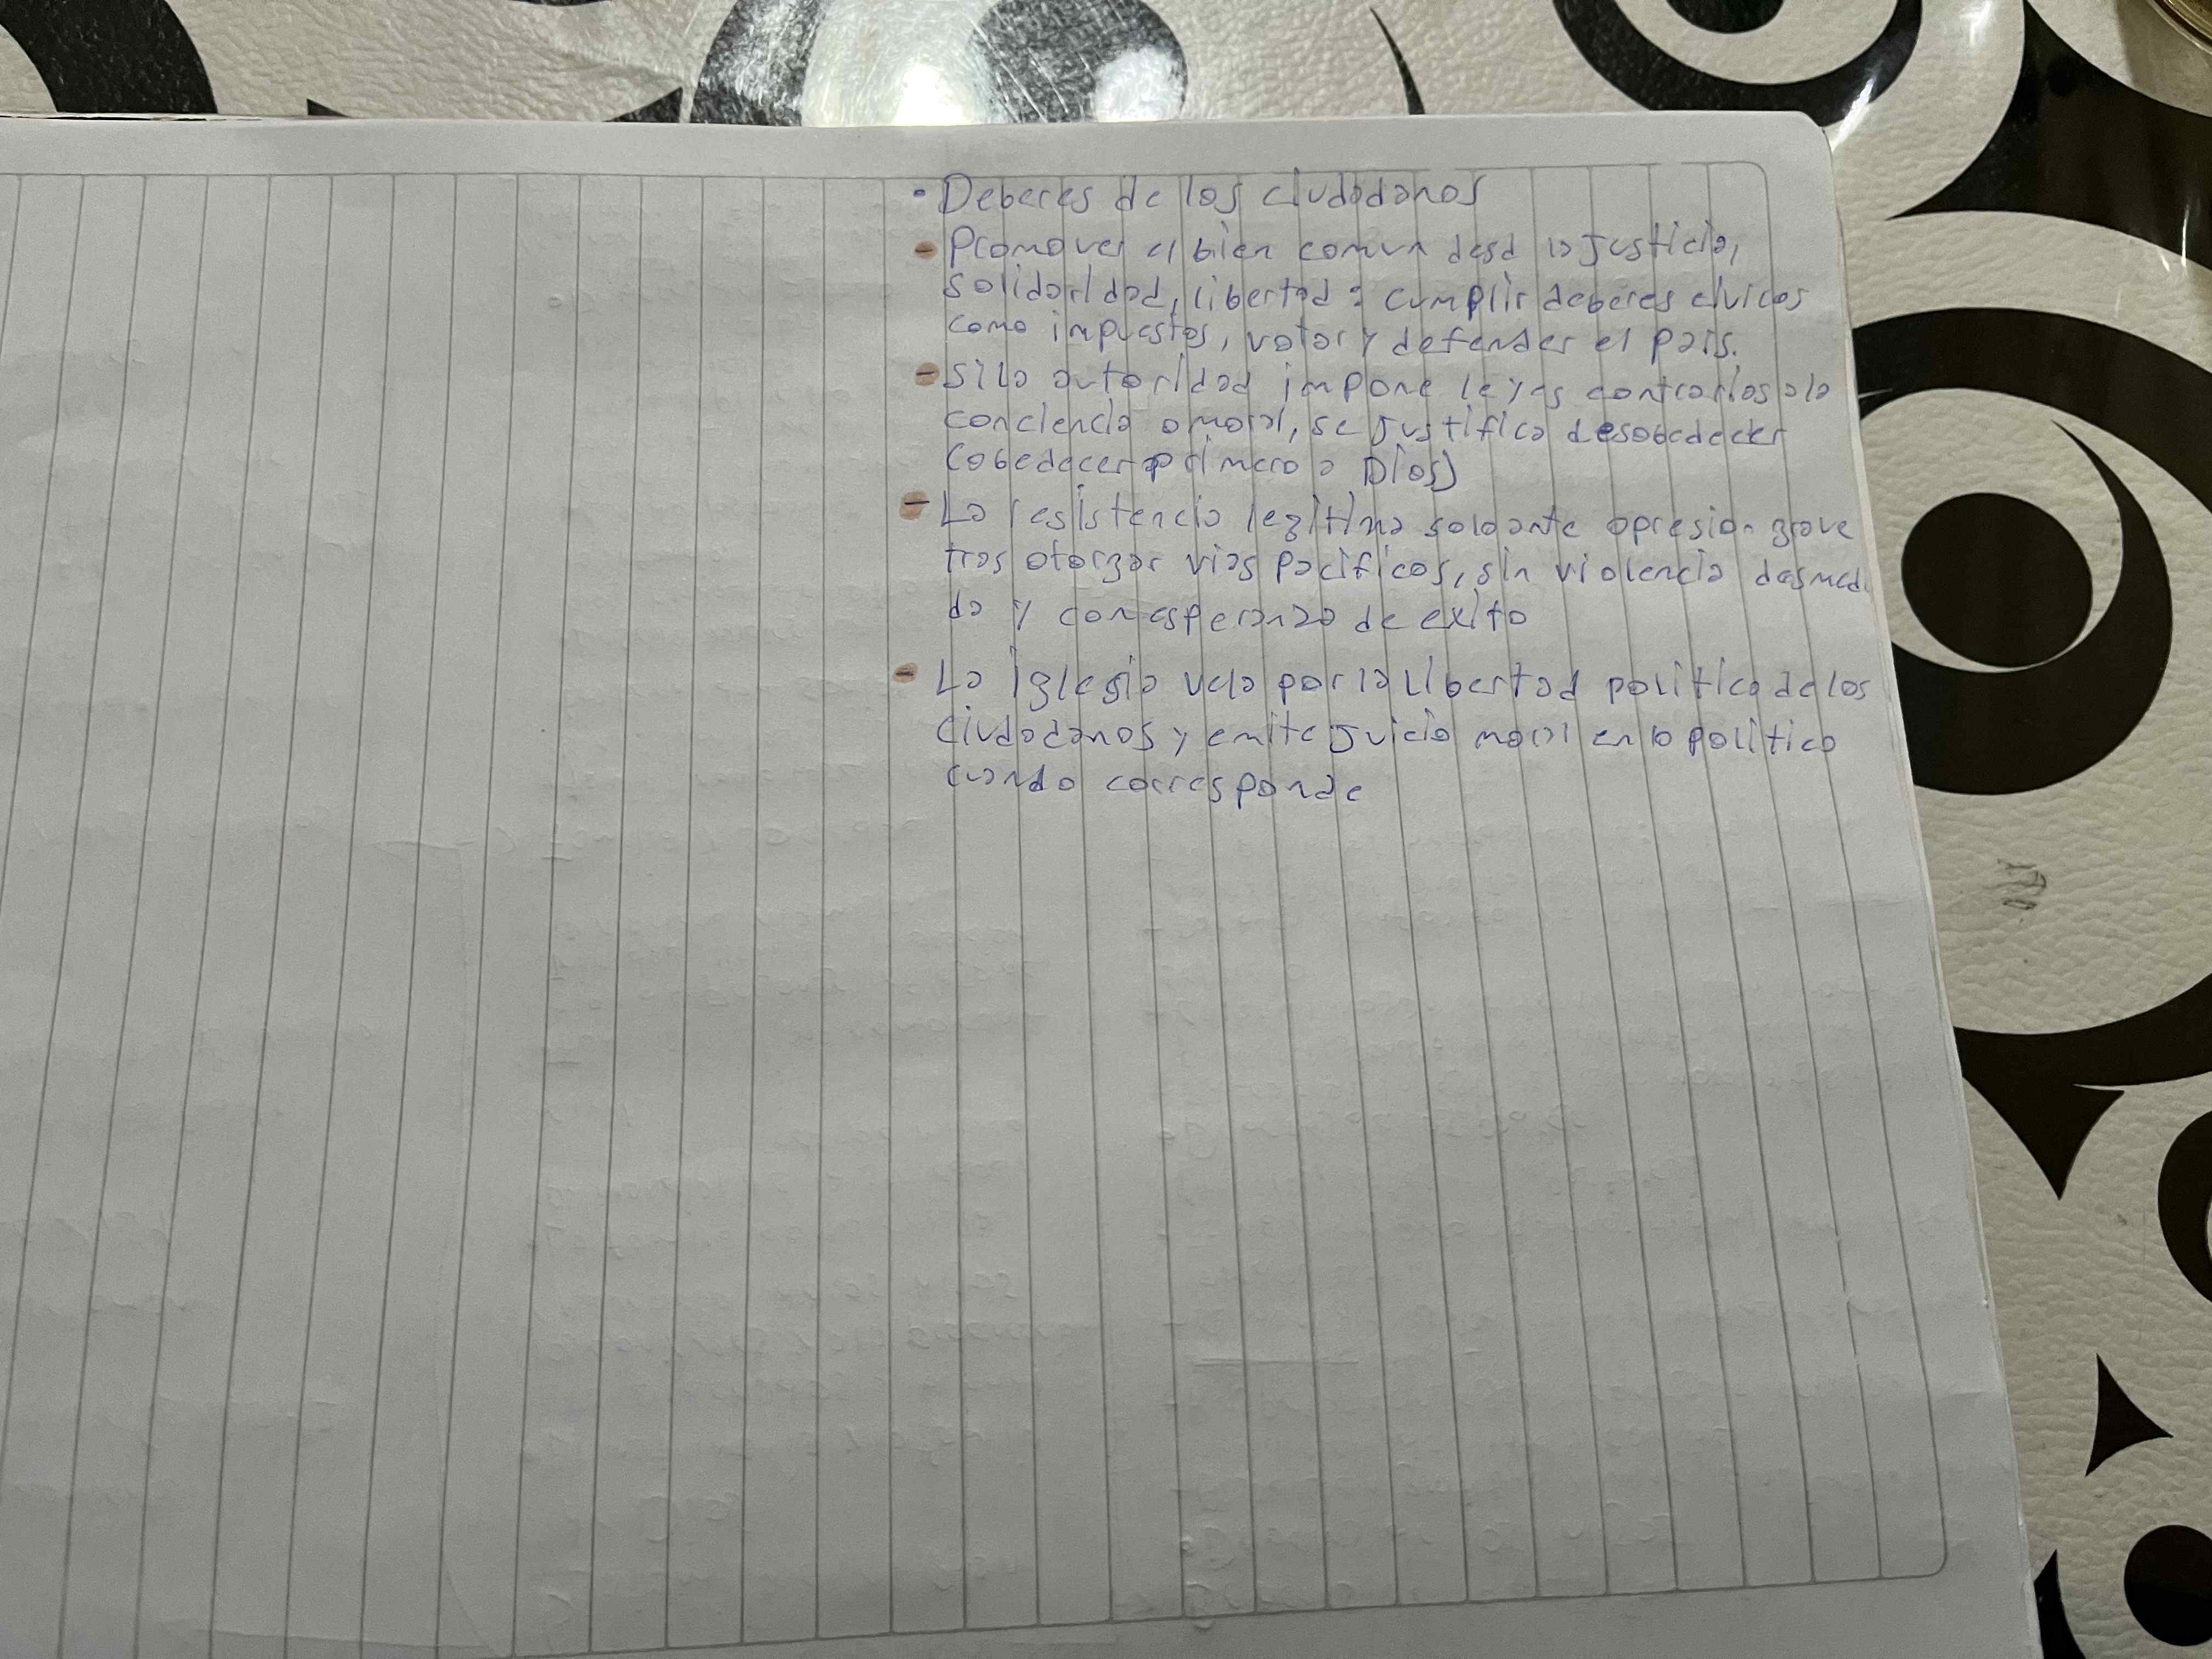 • Deberes de los ciudadanos
- Promover el bien comun desd la Justicia,
solidaridad, libertad : cumplir deberes civicos
como impuestos, votar y defender el pais.
- Si la autoridad impone leyes contrarias a la
conciencia o moral, se justifica desobedecer
(obedecer primero a Dios)
- La resistencia legitima solo ante opresion grave
tras otorgar vias pacificas, sin violencia desmedi
da y con esperanza de exito
- La iglesia vela por la libertad politica de los
ciudadanos y emite juicio moral en lo politico
cuando corresponde